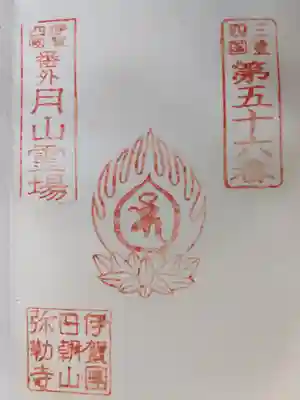 三重
四國
第五十六番
伊賀
四國
番外
月山霊場
伊賀國
日朝山
弥勒寺